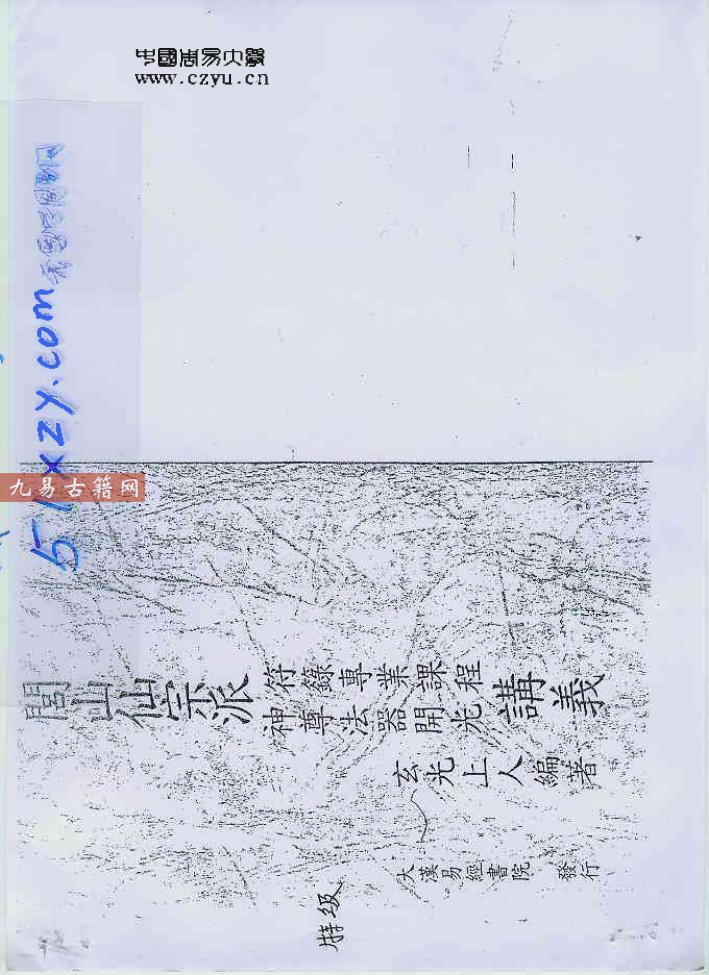 中國周易大學
www.czyu.cn
51xzy.com
九易古籍网
閭山仙宗派
符籙專業課程
神尊法器開光
講義
玄光上人編著
大漢易經書院 發行
特级